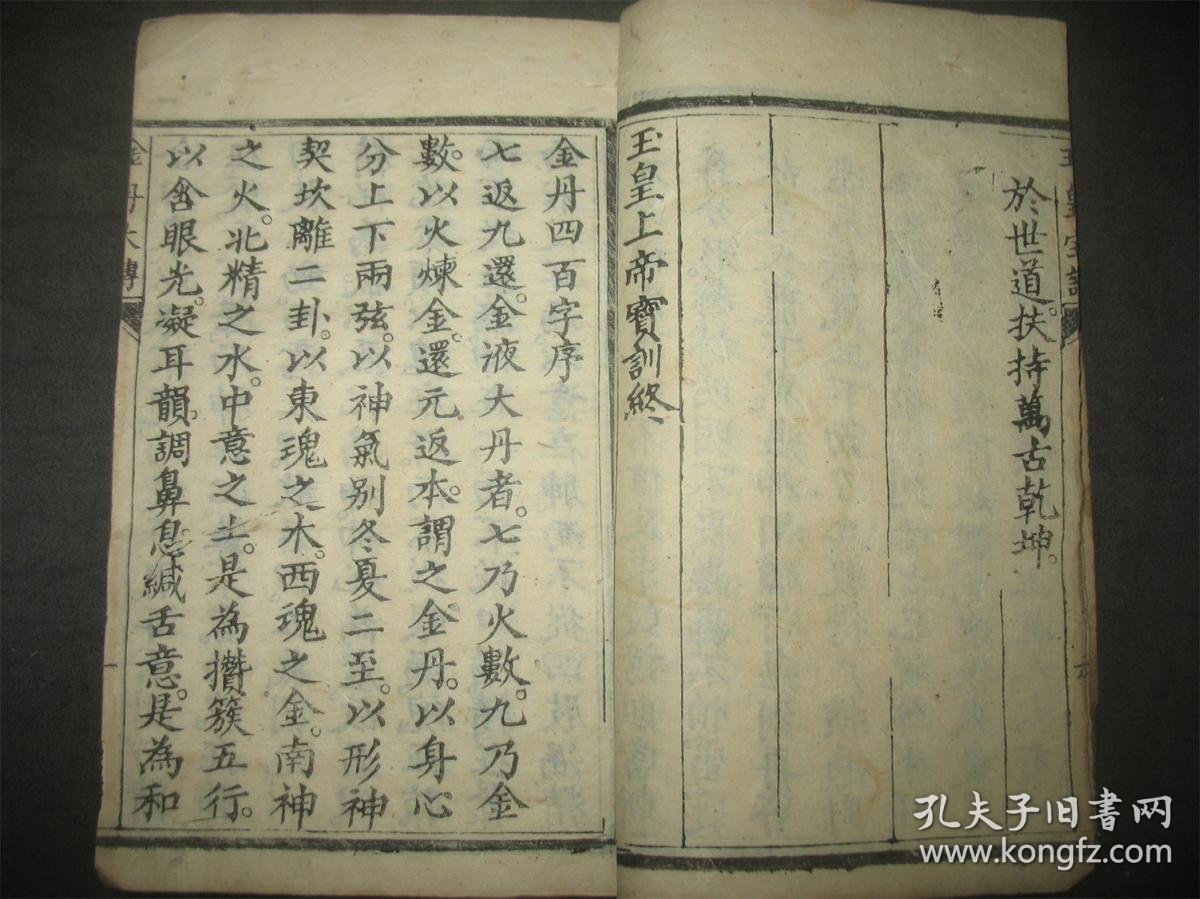 於世道。扶持萬古乾坤。
玉皇上帝寶訓終
金丹四百字序
七返九還。金液大丹者。七乃火數。九乃金
數。以火煉金。還元返本。謂之金丹。以身心
分上下兩弦。以神氣别冬夏二至。以形神
契坎離二卦。以東魂之木。西魂之金。南神
之火。北精之水。中意之土。是為攢簇五行。
以含眼光。凝耳韻。調鼻息。緘舌意。是為和
金丹大傳
孔夫子旧書网
www.kongfz.com